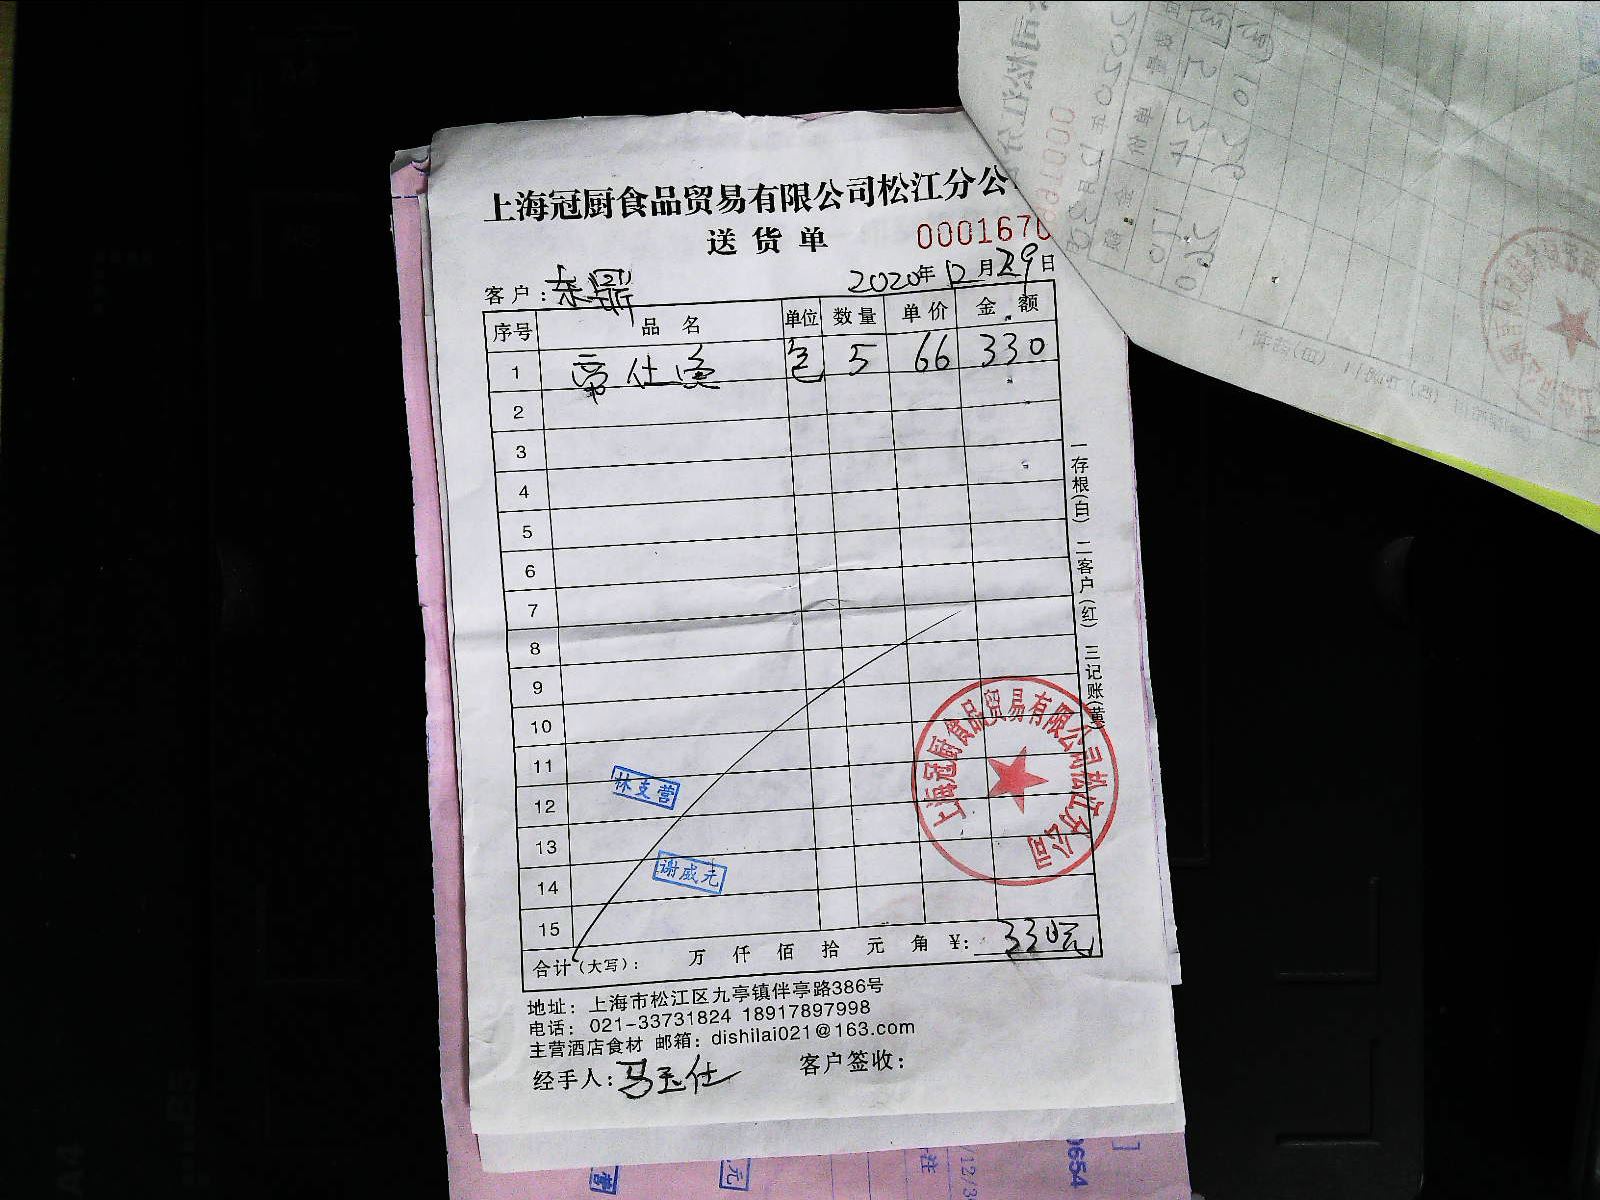 上海冠厨食品贸易有限公司松江分公
送货单 0001670
客户: 东鼎 2020年12月29日
序号 品名 单位 数量 单价 金额
1 帝仕鱼 包 5 66 330
2
3
4
5
6
7
8
9
10
11
12
13
14
15
合计(大写): 万 仟 佰 拾 元 角 ¥: 330元
一存根(白) 二客户(红) 三记账(黄)
上海冠厨食品贸易有限公司松江分公司
林支营
谢威元
地址: 上海市松江区九亭镇伴亭路386号
电话: 021-33731824 18917897998
主营酒店食材 邮箱: dishilai021@163.com
经手人: 马玉仕 客户签收:
0654